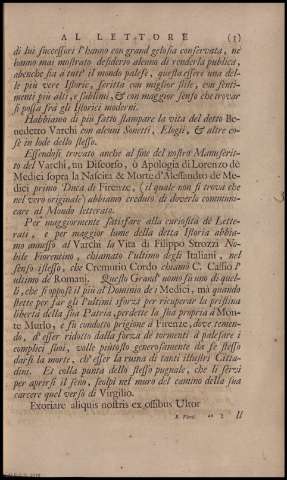 AL LETTORE (3)
di lui successori l'hanno con grand gelosia conservata, nè
hanno mai mostrato desiderio alcuno di renderla publica,
abenche sia a tutt' il mondo palese, questa essere una del-
le più vere Istorie, scritta con miglior stile, con senti-
menti più alti, e sublimi, & con maggior senso che trovar
si possa frà gli Istorici moderni.
Habbiamo di più fatto stampare la vita del detto Be-
nedetto Varchi con alcuni Sonetti, Elogii, & altre co-
se in lode dello stesso.
Essendosi trovato anche al fine del nostro Manuscrit-
to del Varchi, un Discorso, o Apologia di Lorenzo de
Medici sopra la Nascita & Morte d'Alessandro de Me-
dici primo Duca di Firenze, (il quale non si trova che
nel vero originale) abbiamo creduto di doverlo communi-
care al Mondo letterato.
Per maggiormente satisfare alla curiosità de Lette-
rati, e per maggior lume della detta Istoria abbia-
mo annesso al Varchi la Vita di Filippo Strozzi No-
bile Fiorentino, chiamato l'ultimo degli Italiani, nel
senso istesso, che Cremutio Cordo chiamò C. Cassio l'
ultimo de Romani. Questo Grand' uomo fu uno di quel-
li, che si oppose il più al Dominio de i Medici, ma quando
stette per far gli l'ultimi sforzi per ricuperar la pristina
libertà della sua Patria, perdette la sua propria à Mon-
te Murlo, e fu condotto prigione à Firenze, dove temen-
do, d'esser ridotto dalla forza de tormenti à palesare i
complici suoi, volle piutosto generosamente da se stesso
darsi la morte, ch' esser la ruina di tanti illustri Citta-
dini. Et colla punta dello stesso pugnale, che li servi
per apersi il seno, scolpì nel muro del camino della sua
carcere quel verso di Virgilio.
Exoriare aliquis nostris ex ossibus Ultor
2 Il